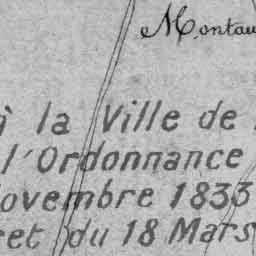 Montau
à la Ville de
l'Ordonnance
ovembre 1833
ret du 18 Mars